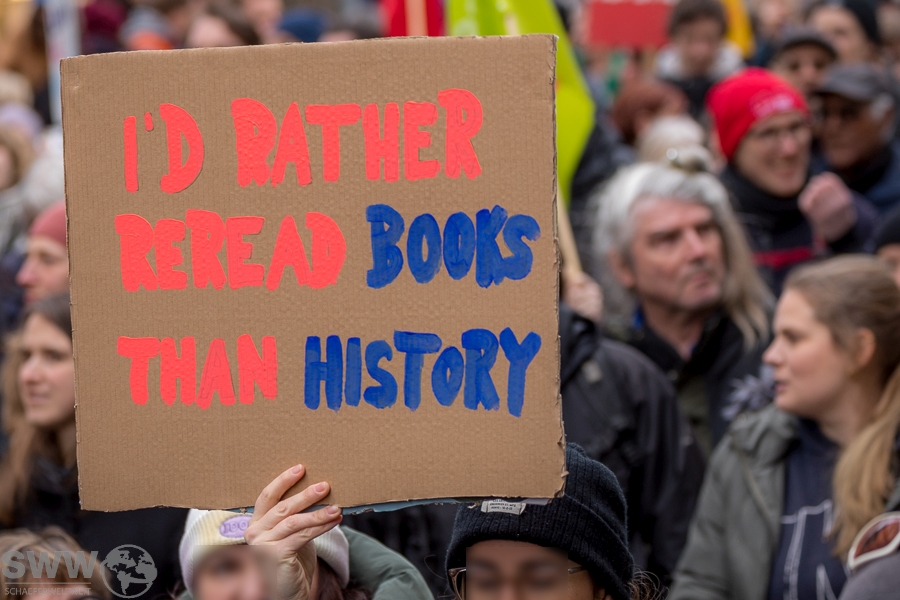 I'D RATHER
REREAD BOOKS
THAN HISTORY
SWW